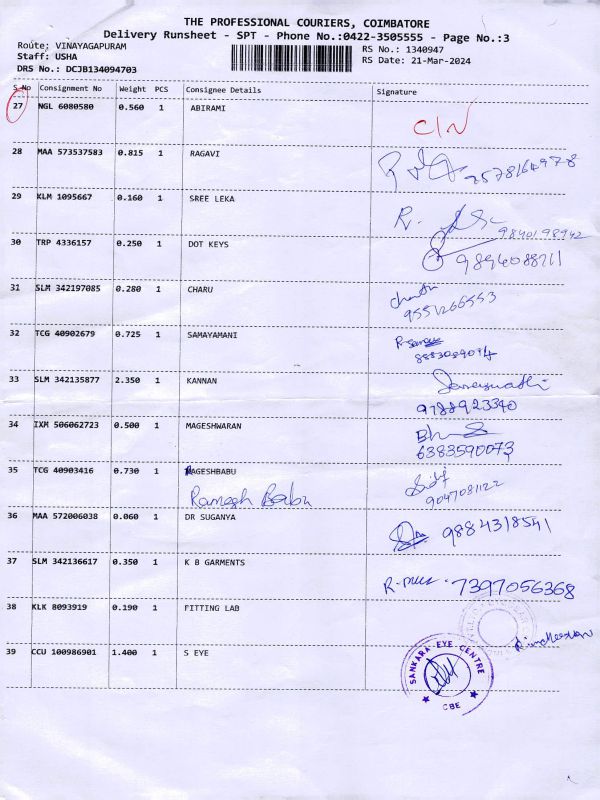 THE PROFESSIONAL COURIERS, COIMBATORE
Delivery Runsheet - SPT - Phone No.:0422-3505555 - Page No.:3
Route: VINAYAGAPURAM
Staff: USHA
DRS No.: DCJB134094703
RS No.: 1340947
RS Date: 21-Mar-2024
S.No Consignment No Weight PCS Consignee Details Signature
27 NGL 6080580 0.560 1 ABIRAMI
C/N
28 MAA 573537583 0.815 1 RAGAVI
7578164978
29 KLM 1095667 0.160 1 SREE LEKA
R.
9840198942
30 TRP 4336157 0.250 1 DOT KEYS
9894088711
31 SLM 342197085 0.280 1 CHARU
9551266553
32 TCG 40902679 0.725 1 SAMAYAMANI
33 SLM 342135877 2.350 1 KANNAN
9788923340
34 IXM 506062723 0.500 1 MAGESHWARAN
6383590073
35 TCG 40903416 0.730 1 RAGESHBABU
Ramesh Babu
9047081122
36 MAA 572006038 0.060 1 DR SUGANYA
9884318541
37 SLM 342136617 0.350 1 K B GARMENTS
7397056368
38 KLK 8093919 0.190 1 FITTING LAB
39 CCU 100986901 1.400 1 S EYE
SANKARA EYE CENTRE
CBE